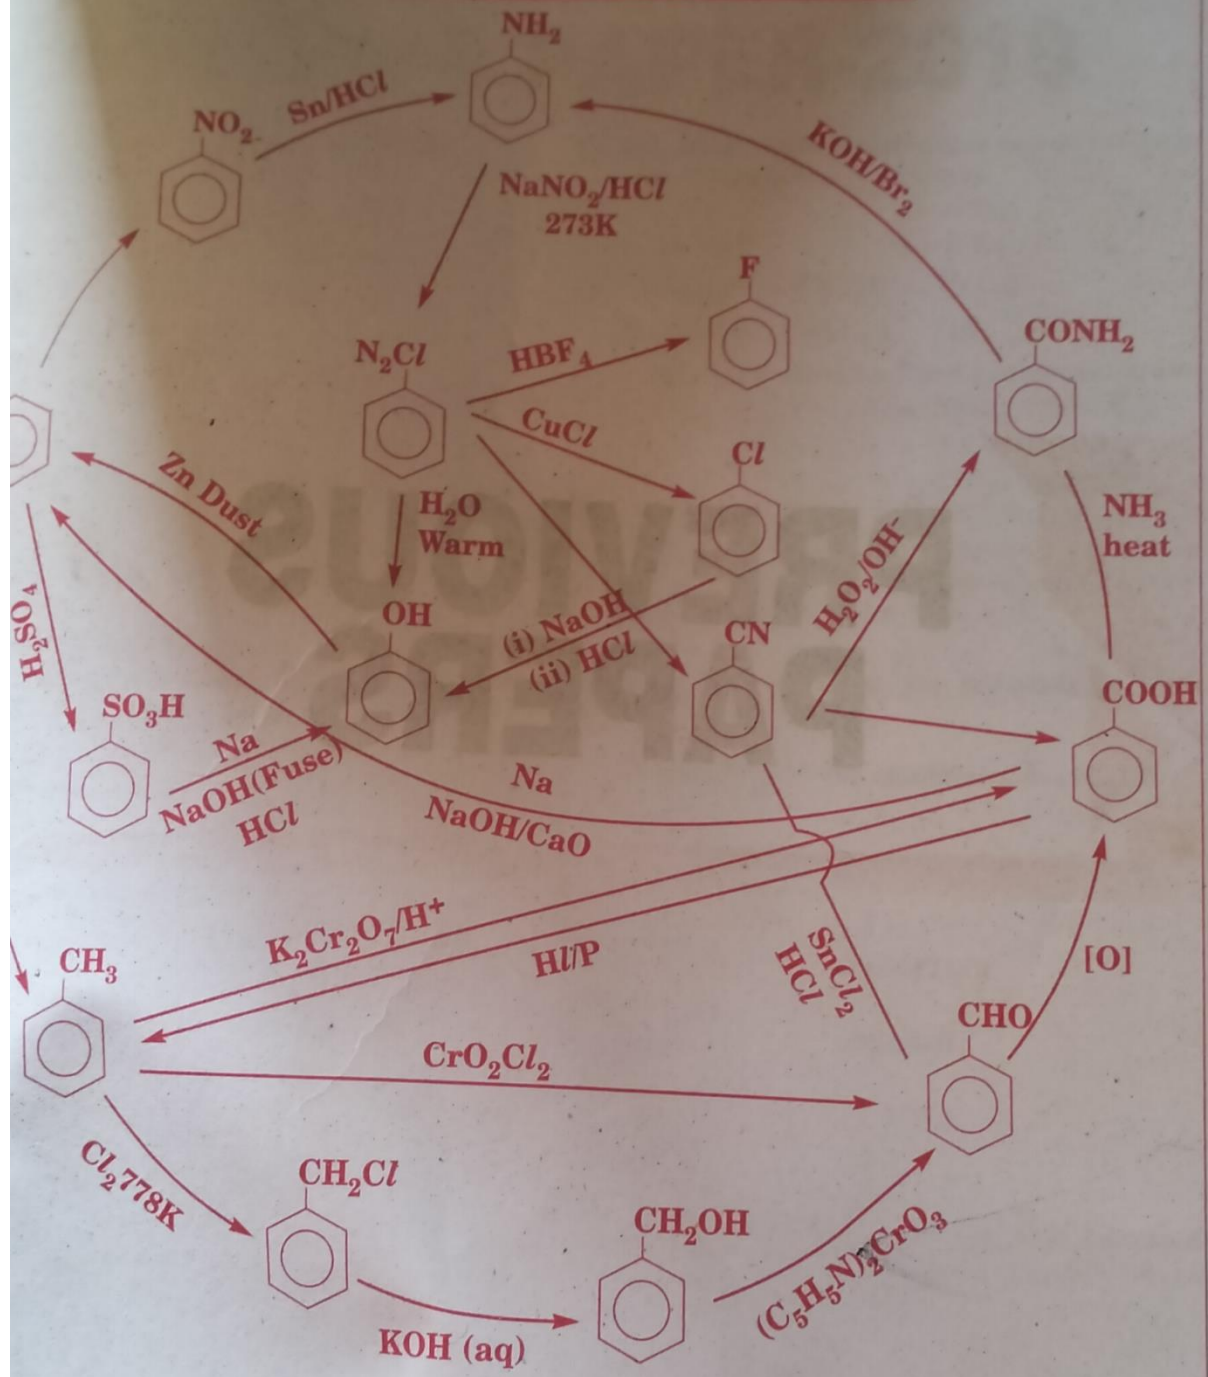 NH₂
NO₂
Sn/HCl
KOH/Br₂
NaNO₂/HCl
273K
F
CONH₂
N₂Cl
HBF₄
CuCl
Cl
Zn Dust
H₂O
Warm
NH₃
heat
H₂O₂/OH⁻
H₂SO₄
OH
(i) NaOH
(ii) HCl
CN
COOH
SO₃H
Na
NaOH(Fuse)
HCl
Na
NaOH/CaO
K₂Cr₂O₇/H⁺
HI/P
SnCl₂
HCl
[O]
CH₃
CHO
CrO₂Cl₂
Cl₂778K
CH₂Cl
CH₂OH
(C₅H₅N)₂CrO₃
KOH (aq)
PREVIOUS
PAPERS